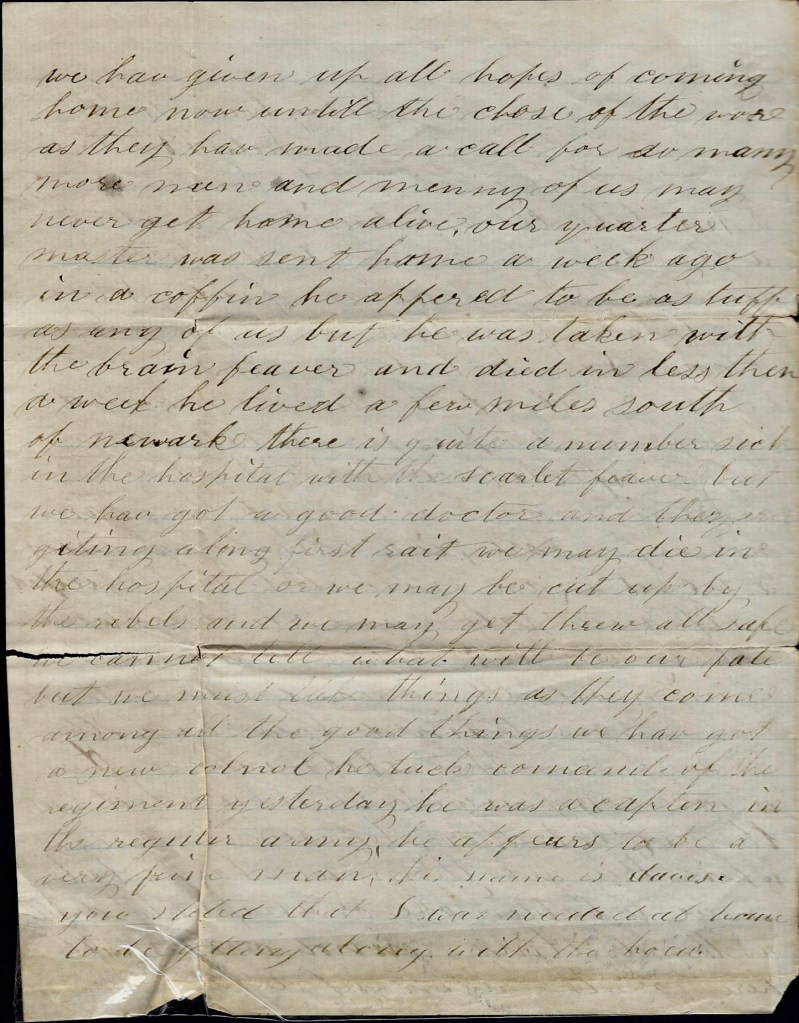 we hav given up all hopes of coming
home now untill the close of the wore
as they hav made a call for so manny
more men and menny of us may
never get home alive, our quarter
master was sent home a week ago
in a coffin he appered to be as tuff
as any of us but he was taken with
the brain feaver and died in less then
a week he lived a few miles south
of newark there is quite a number sick
in the hospital with the scarlet feaver but
we hav got a good doctor and they
giting along first rait we may die in
the hospital or we may be cut up by
the rebels and we may get threw all safe
we cannot tell what will be our fate
but we must take things as they come
among all the good things we hav got
a new colnol he tuck comand of the
regiment yesterday he was a capten in
the reguler army, he appears to be a
very fine man, his name is davis.
you stated that I was needed at home
to be giting along with the